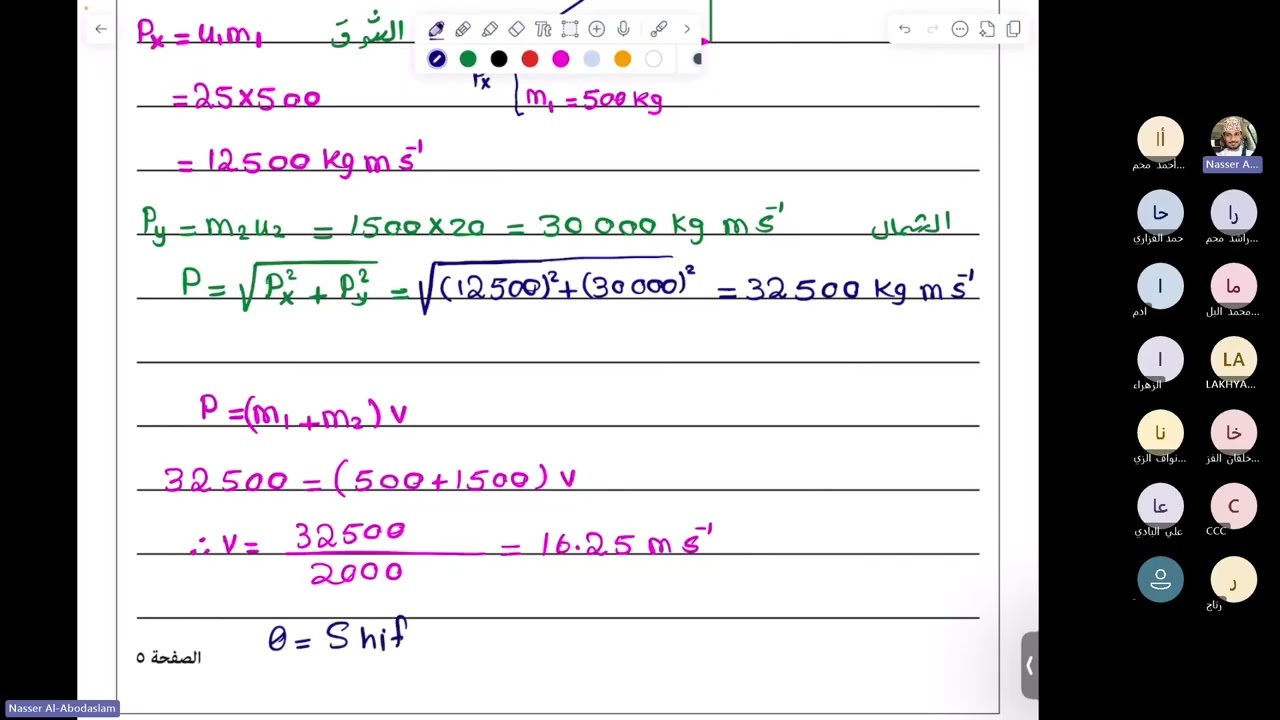 Pₓ = u₁m₁ الشرق
Tt
Pₓ
= 25 × 500
m₁ = 500 kg
= 12500 kg m s⁻¹
P_y = m₂u₂ = 1500 × 20 = 30 000 kg m s⁻¹ الشمال
P = √(Pₓ² + P_y²) = √((12500)² + (30000)²) = 32500 kg m s⁻¹
P = (m₁ + m₂) v
32500 = (500 + 1500) v
∴ v = 32500 / 2000 = 16.25 m s⁻¹
θ = Shif
الصفحة ٥
Nasser Al-Abodaslam
أا
أحمد محم...
Nasser A...
حا
حمد الفزاري
را
راشد محم...
ا
ادم
ما
محمد البل...
ا
الزهراء
LA
LAKHYA...
نا
نواف الزي...
خا
خلفان الفز...
عا
علي البادي
C
CCC
ر
رتاج